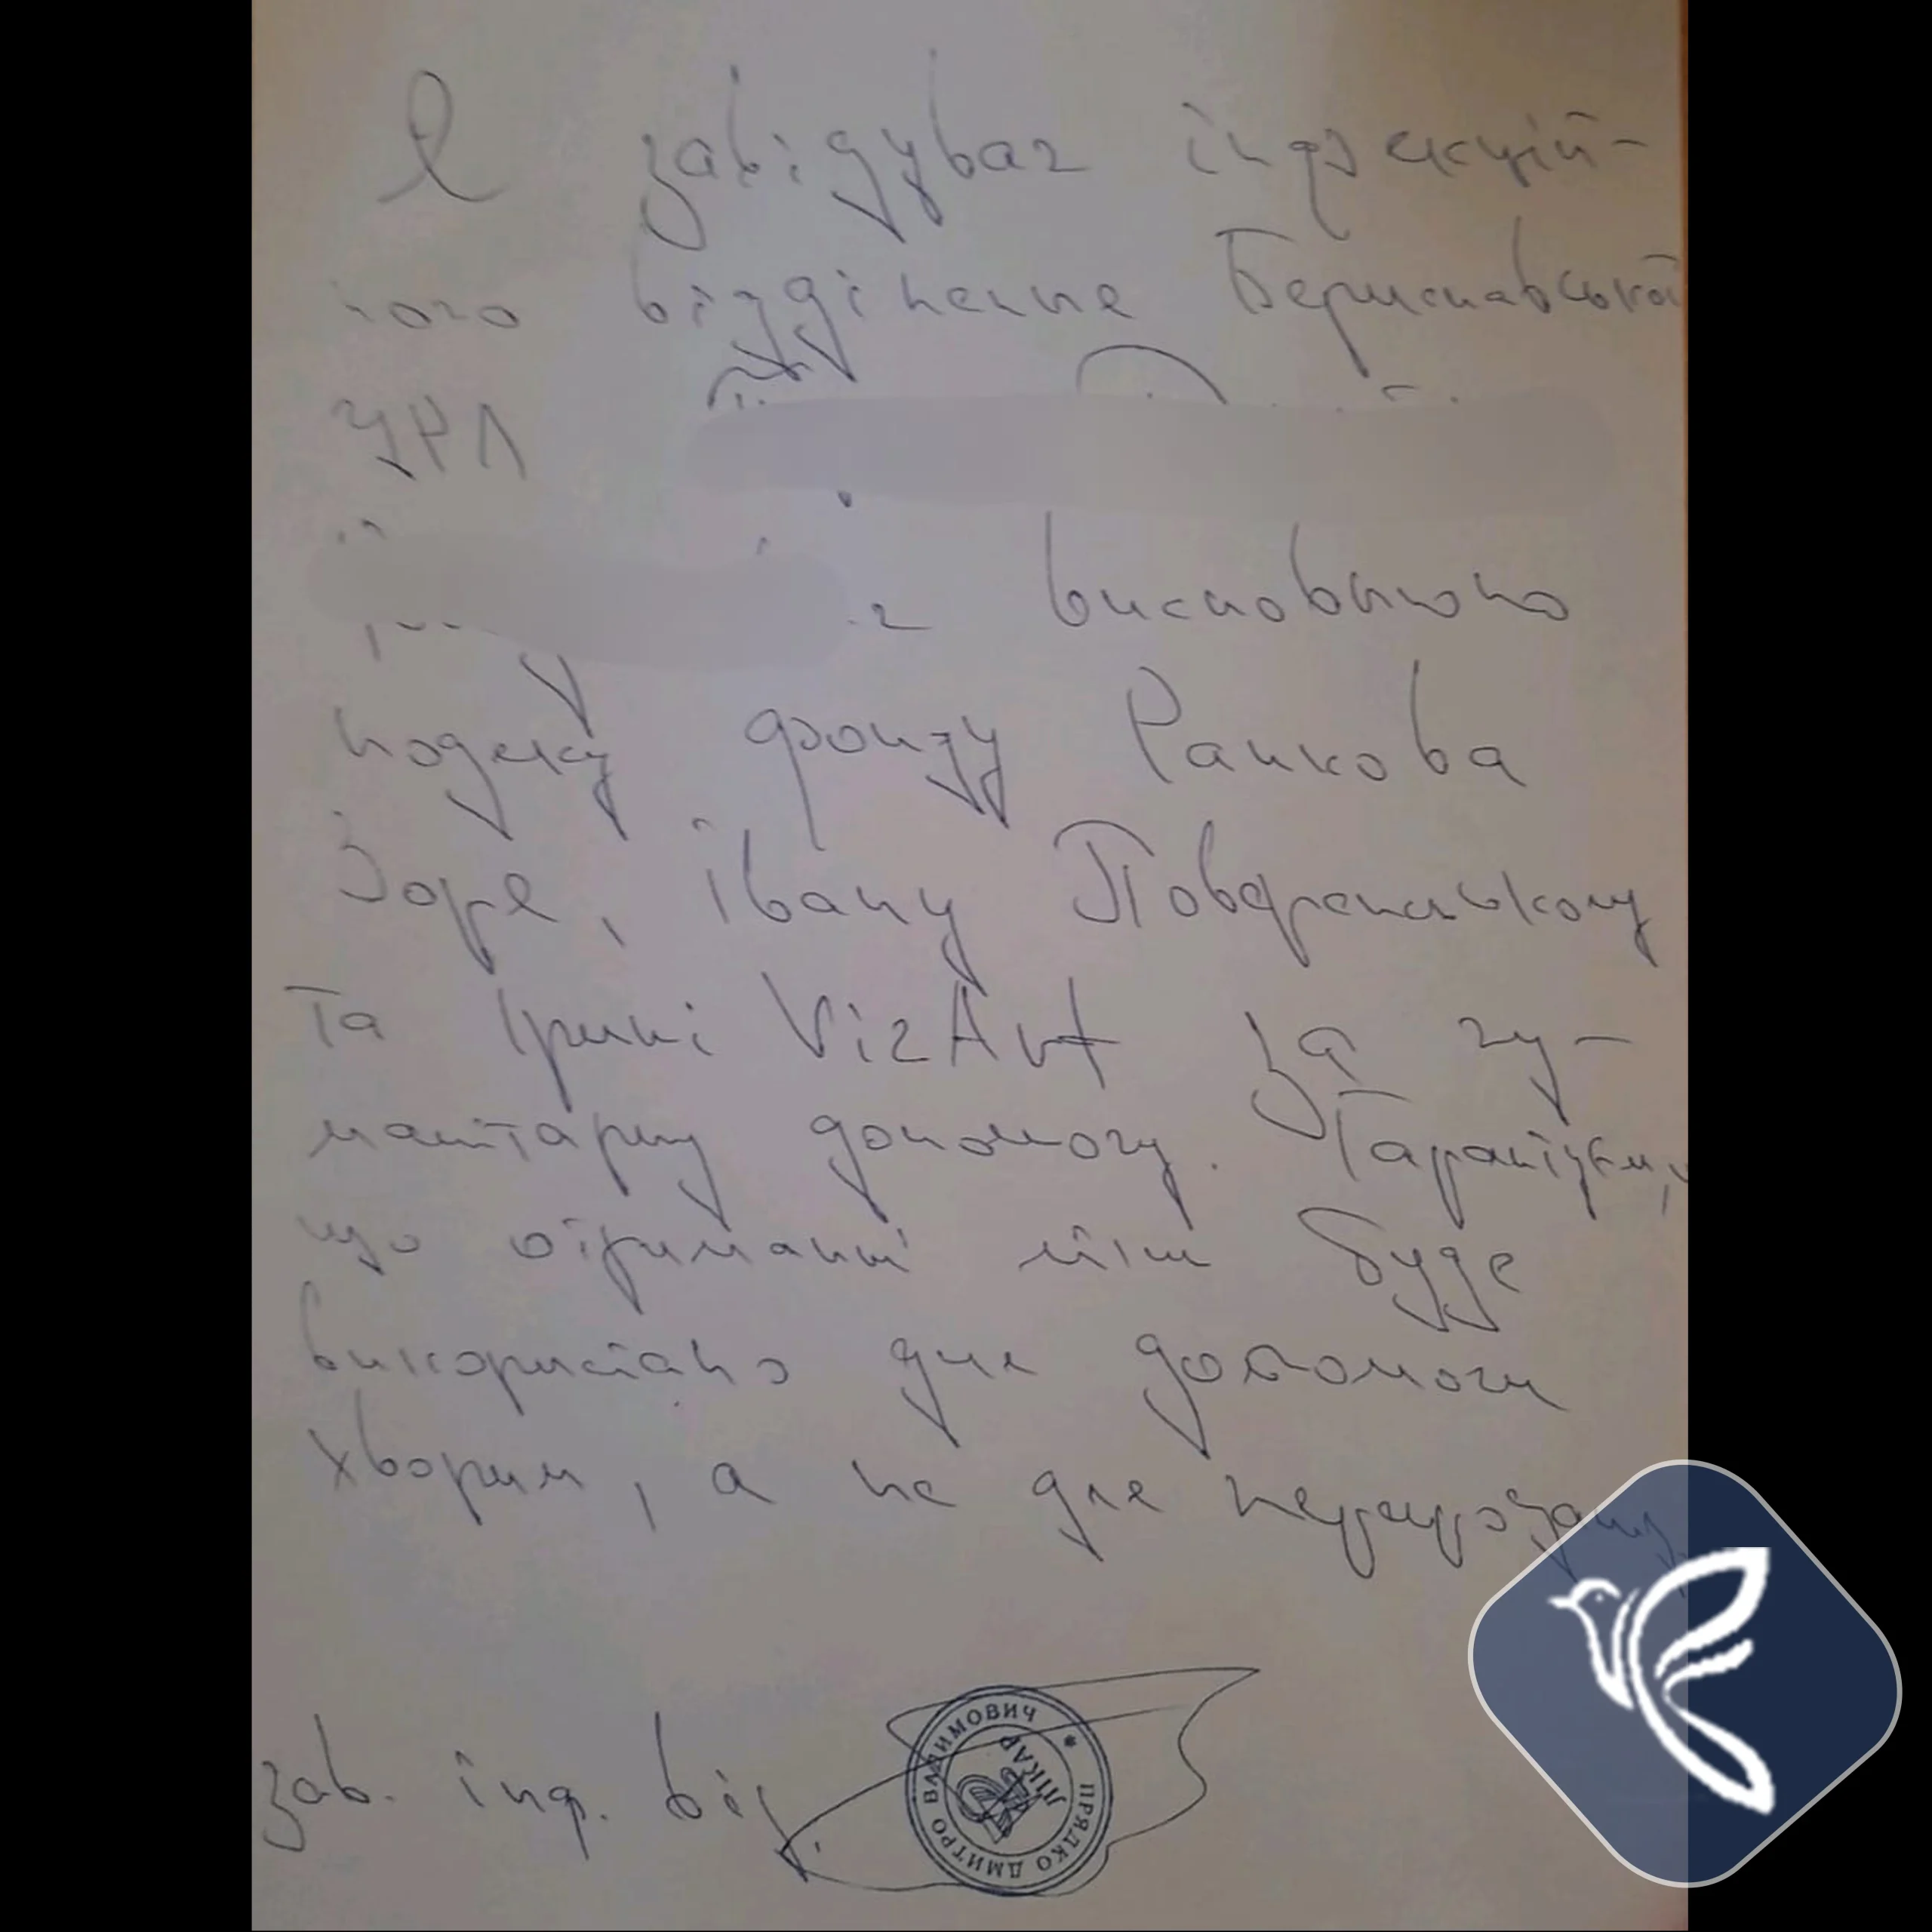 Я завідувач інфекцій-
ного відділення Бериславської
ЦРЛ
висновлюю
подяку фонду Ранкова
Зоря, Івану
та Ірині VizArt за гу-
манітарну допомогу. Гарантуєм,
що отримані ліки буде
використано для допомоги
хворим, а не для перепродажу
зав. інф. від.
ПРЯДКО ДМИТРО ВАДИМОВИЧ
ЛІКАР